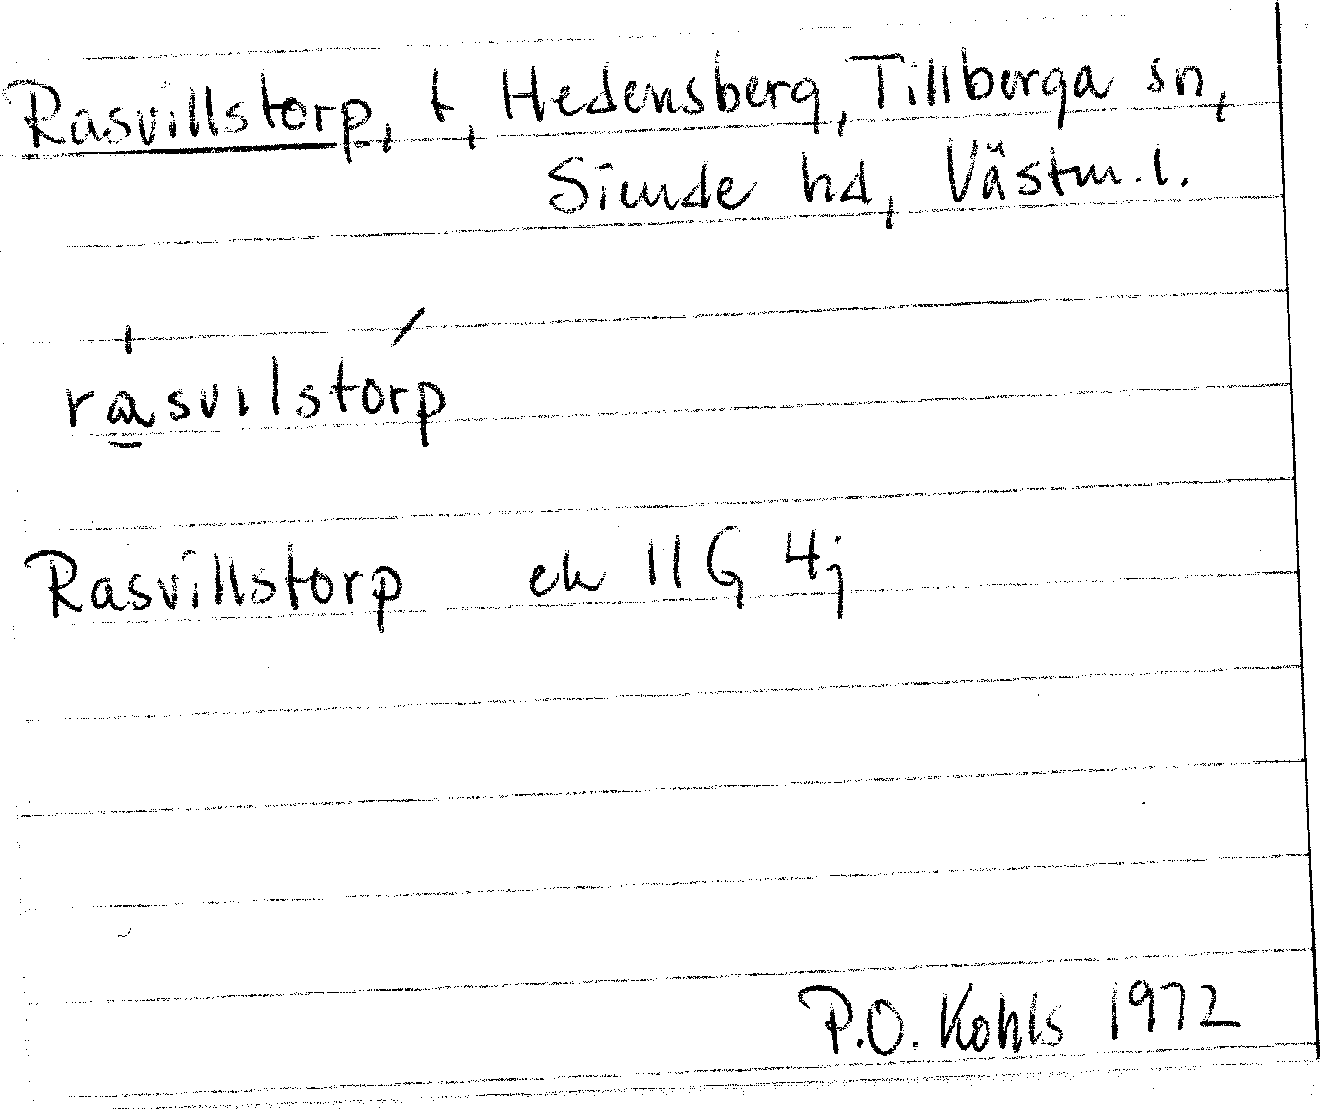 Rasvillstorp, t, Hedensberg, Tillberga sn,
Siende hd, Västm.l.
rasvilstórp
Rasvillstorp ek 11G 4j
P.O. Kohls 1972